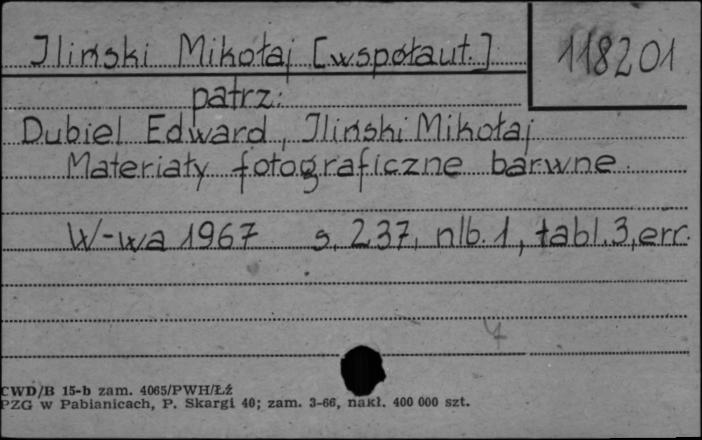 Iliński Mikołaj [współaut.]
118201
patrz:
Dubiel Edward, Iliński Mikołaj
Materiały fotograficzne barwne.
W-wa 1967 s. 237, nlb. 1, tabl. 3, err.
4
CWD/B 15-b zam. 4065/PWH/Łź
PZG w Pabianicach, P. Skargi 40; zam. 3-66, nakł. 400 000 szt.